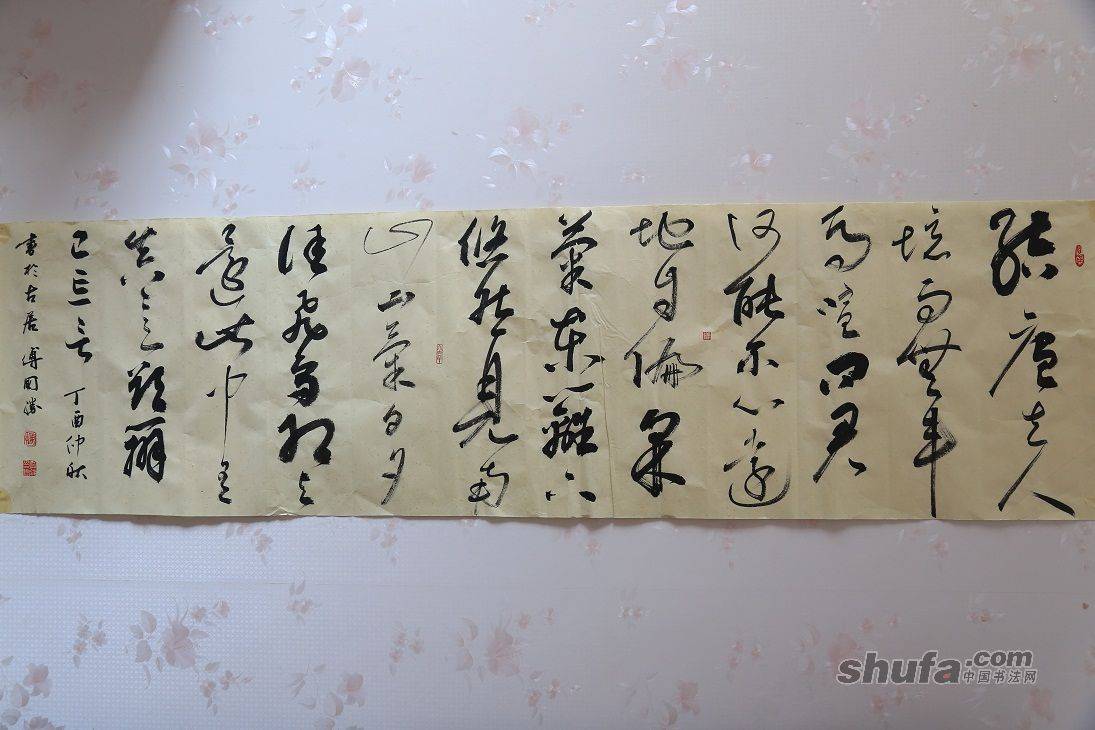 結廬在人
境而無車
馬喧問君
何能尔心遠
地自偏采
菊東籬下
悠然見南
山山氣日夕
佳飛鳥相与
還此中有
真意欲辨
已忘言 丁酉仲秋
書於古居 傅国勝
shufa.com
中国书法网